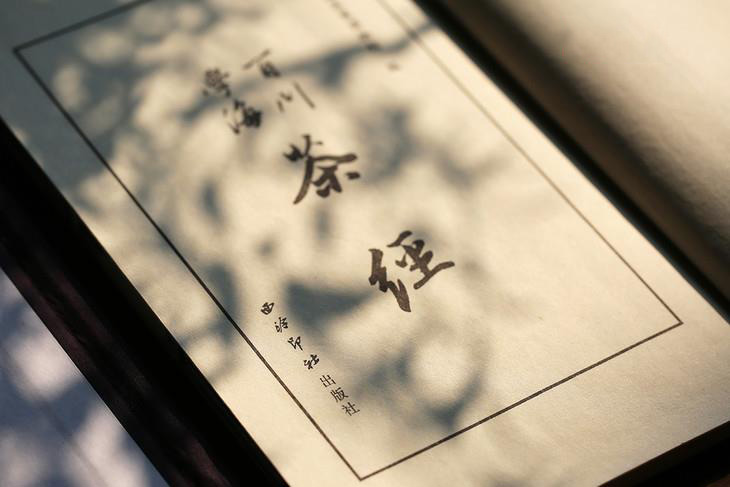 百川
學海
茶經
西泠印社出版社